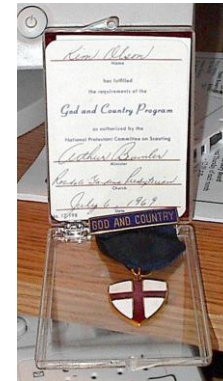 Kim Olson
Name
has fulfilled
the requirements of the
God and Country Program
as authorized by the
National Protestant Committee on Scouting
Arthur
Minister
Presbyterian
Church
July 6 1969
Date
GOD AND COUNTRY